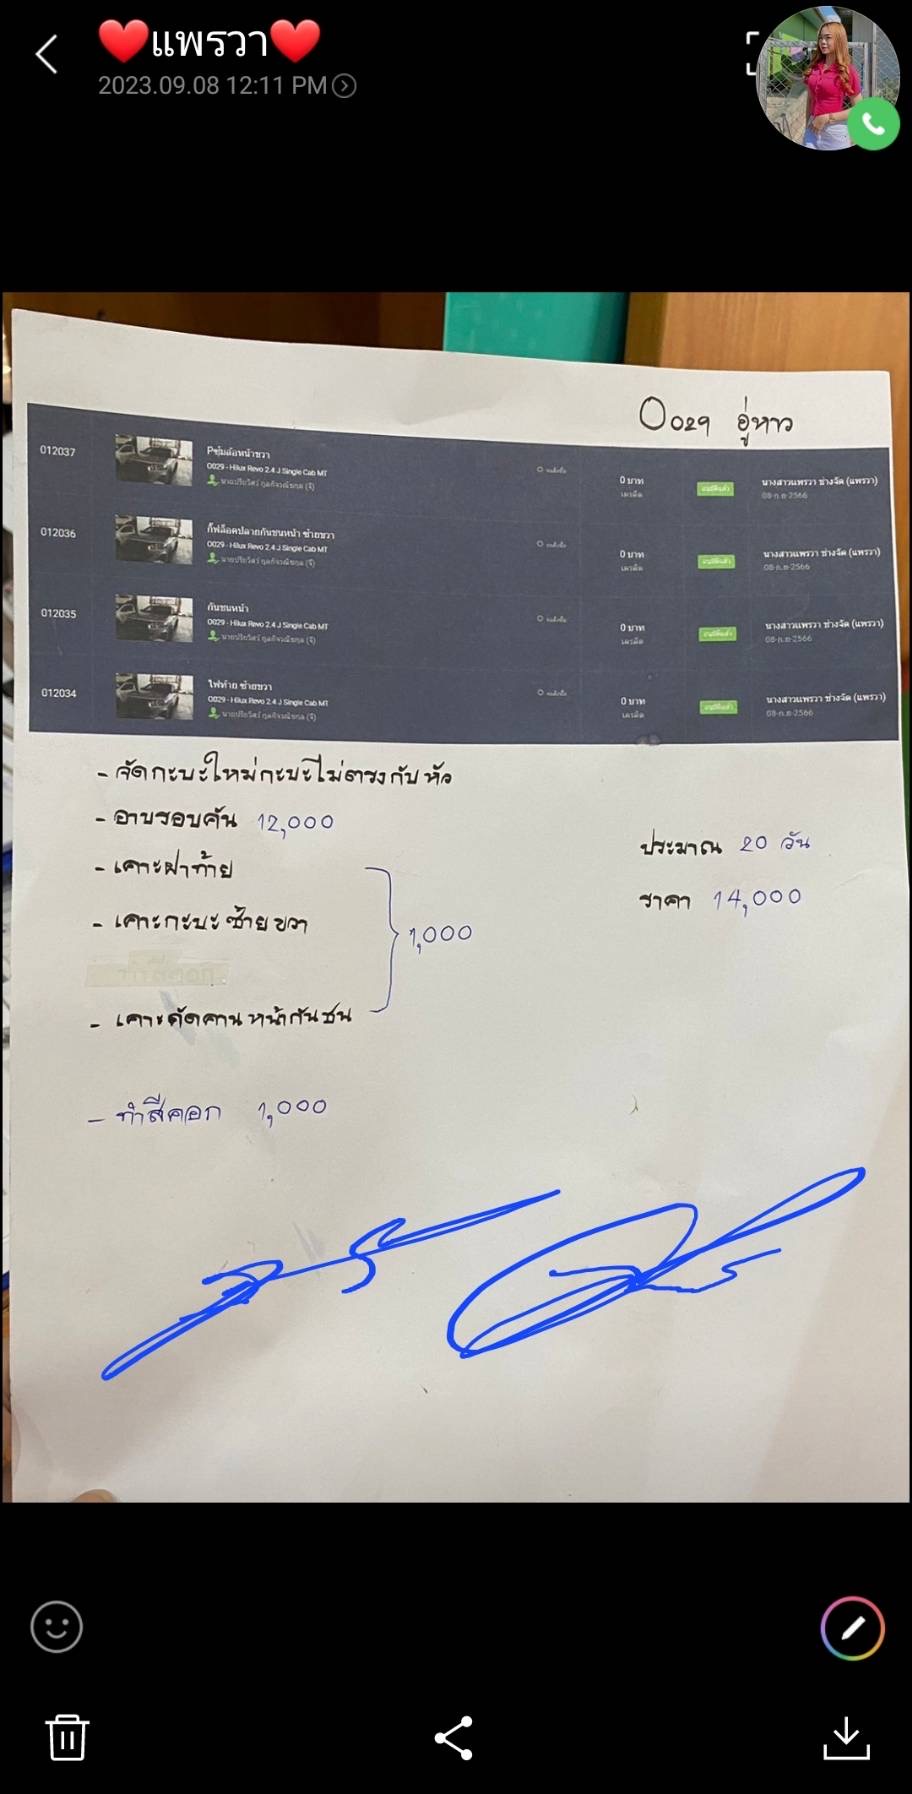 ❤️แพรวา❤️
2023.09.08 12:11 PM
0029 อู่หาว
012037
Pซุ้มล้อหน้าขวา
0029 - Hilux Revo 2.4 J Single Cab MT
0 บาท
เครดิต
อนุมัติแล้ว
นางสาวแพรวา ช่างจัด (แพรวา)
08-ก.ย-2566
012036
กิ๊ฟล็อคปลายกันชนหน้า ซ้ายขวา
0029 - Hilux Revo 2.4 J Single Cab MT
0 บาท
เครดิต
อนุมัติแล้ว
นางสาวแพรวา ช่างจัด (แพรวา)
08-ก.ย-2566
012035
กันชนหน้า
0029 - Hilux Revo 2.4 J Single Cab MT
0 บาท
เครดิต
อนุมัติแล้ว
นางสาวแพรวา ช่างจัด (แพรวา)
08-ก.ย-2566
012034
ไฟท้าย ซ้ายขวา
0029 - Hilux Revo 2.4 J Single Cab MT
0 บาท
เครดิต
อนุมัติแล้ว
นางสาวแพรวา ช่างจัด (แพรวา)
08-ก.ย-2566
- จัดกะบะใหม่กะบะไม่ตรงกับหัว
- อาบรอบคัน 12,000
- เคาะฝาท้าย
- เคาะกะบะซ้ายขวา
1,000
- เคาะดัดคานหน้ากันชน
- ทำสีคอก 1,000
ประมาณ 20 วัน
ราคา 14,000